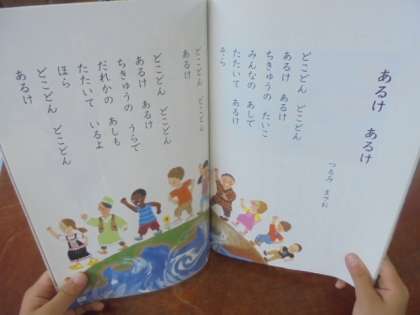 あるけ あるけ
つるみ まさお
どこどん どこどん
あるけ あるけ
ちきゅうの たいこ
みんなの あしで
たたいて あるけ
ほら
どこどん どこどん
あるけ
どこどん どこどん
あるけ あるけ
ちきゅうの うらで
だれかの あしも
たたいて いるよ
ほら
どこどん どこどん
あるけ